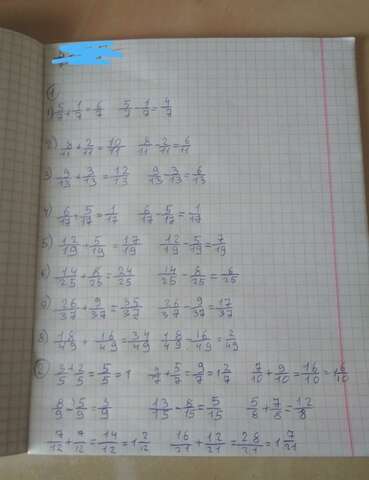 ①
1) 5/7 + 1/7 = 6/7   5/7 - 1/7 = 4/7
2) 8/11 + 2/11 = 10/11   8/11 - 2/11 = 6/11
3) 9/13 + 3/13 = 12/13   9/13 - 3/13 = 6/13
4) 6/17 + 5/17 = 1/17   6/17 - 5/17 = 1/17
5) 12/19 + 5/19 = 17/19   12/19 - 5/19 = 7/19
6) 14/25 + 8/25 = 24/25   14/25 - 8/25 = 6/25
7) 26/37 + 9/37 = 35/37   26/37 - 9/37 = 17/37
8) 18/49 + 16/49 = 34/49   18/49 - 16/49 = 2/49
② 3/5 + 2/5 = 5/5 = 1   4/7 + 5/7 = 9/7 = 1 2/7   7/10 + 9/10 = 16/10 = 1 6/10
8/9 - 5/9 = 3/9   13/15 - 8/15 = 5/15   5/8 + 7/8 = 12/8
7/12 + 7/12 = 14/12 = 1 2/12   16/21 + 12/21 = 28/21 = 1 7/21